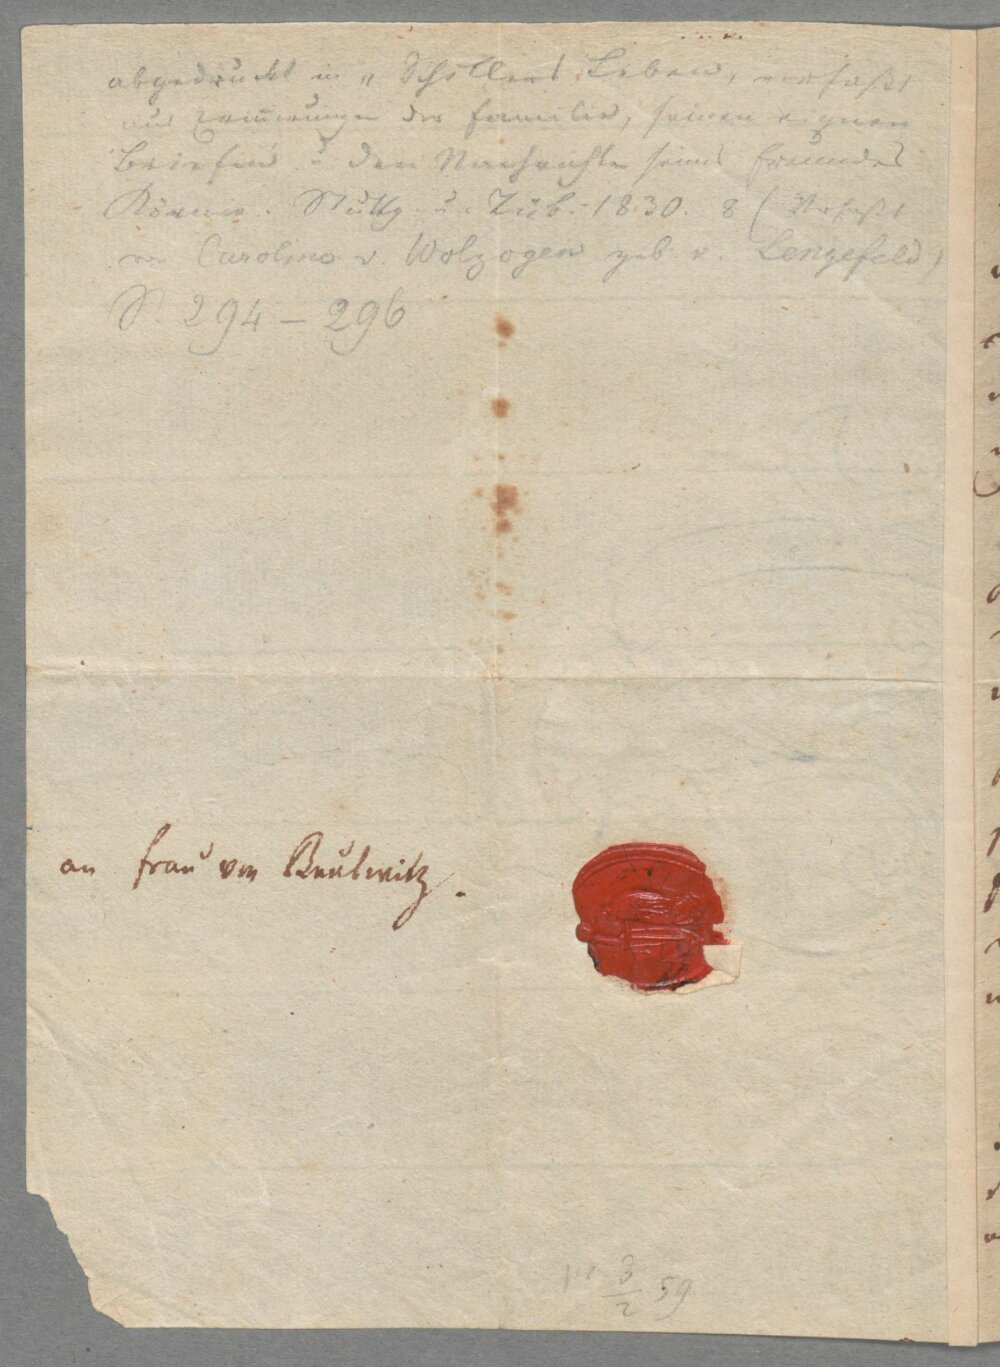 abgedruckt in „Schillers Leben, verfaßt
aus Erinnerungen der Familie, seinen eignen
Briefen u den Nachrichten seines Freundes
Körner. Stuttg u. Tüb. 1830. 8 (Verfaßt
von Caroline v. Wolzogen geb v. Lengefeld)
S. 294 – 296
an Frau von Beulwitz.
3/2 59